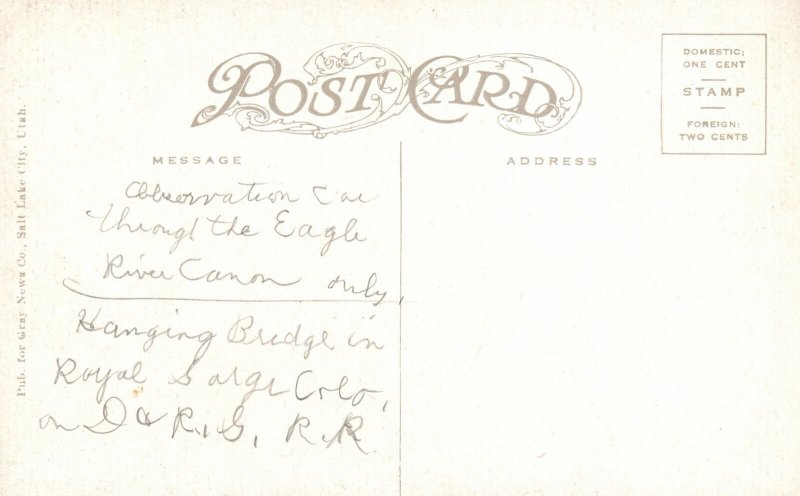 POST CARD
DOMESTIC;
ONE CENT
STAMP
FOREIGN:
TWO CENTS
MESSAGE
ADDRESS
Observation Car
through the Eagle
River Canon only,
Hanging Bridge in
Royal Gorge Colo,
on D & R, G, R.R.
Pub. for Gray News Co., Salt Lake City, Utah.